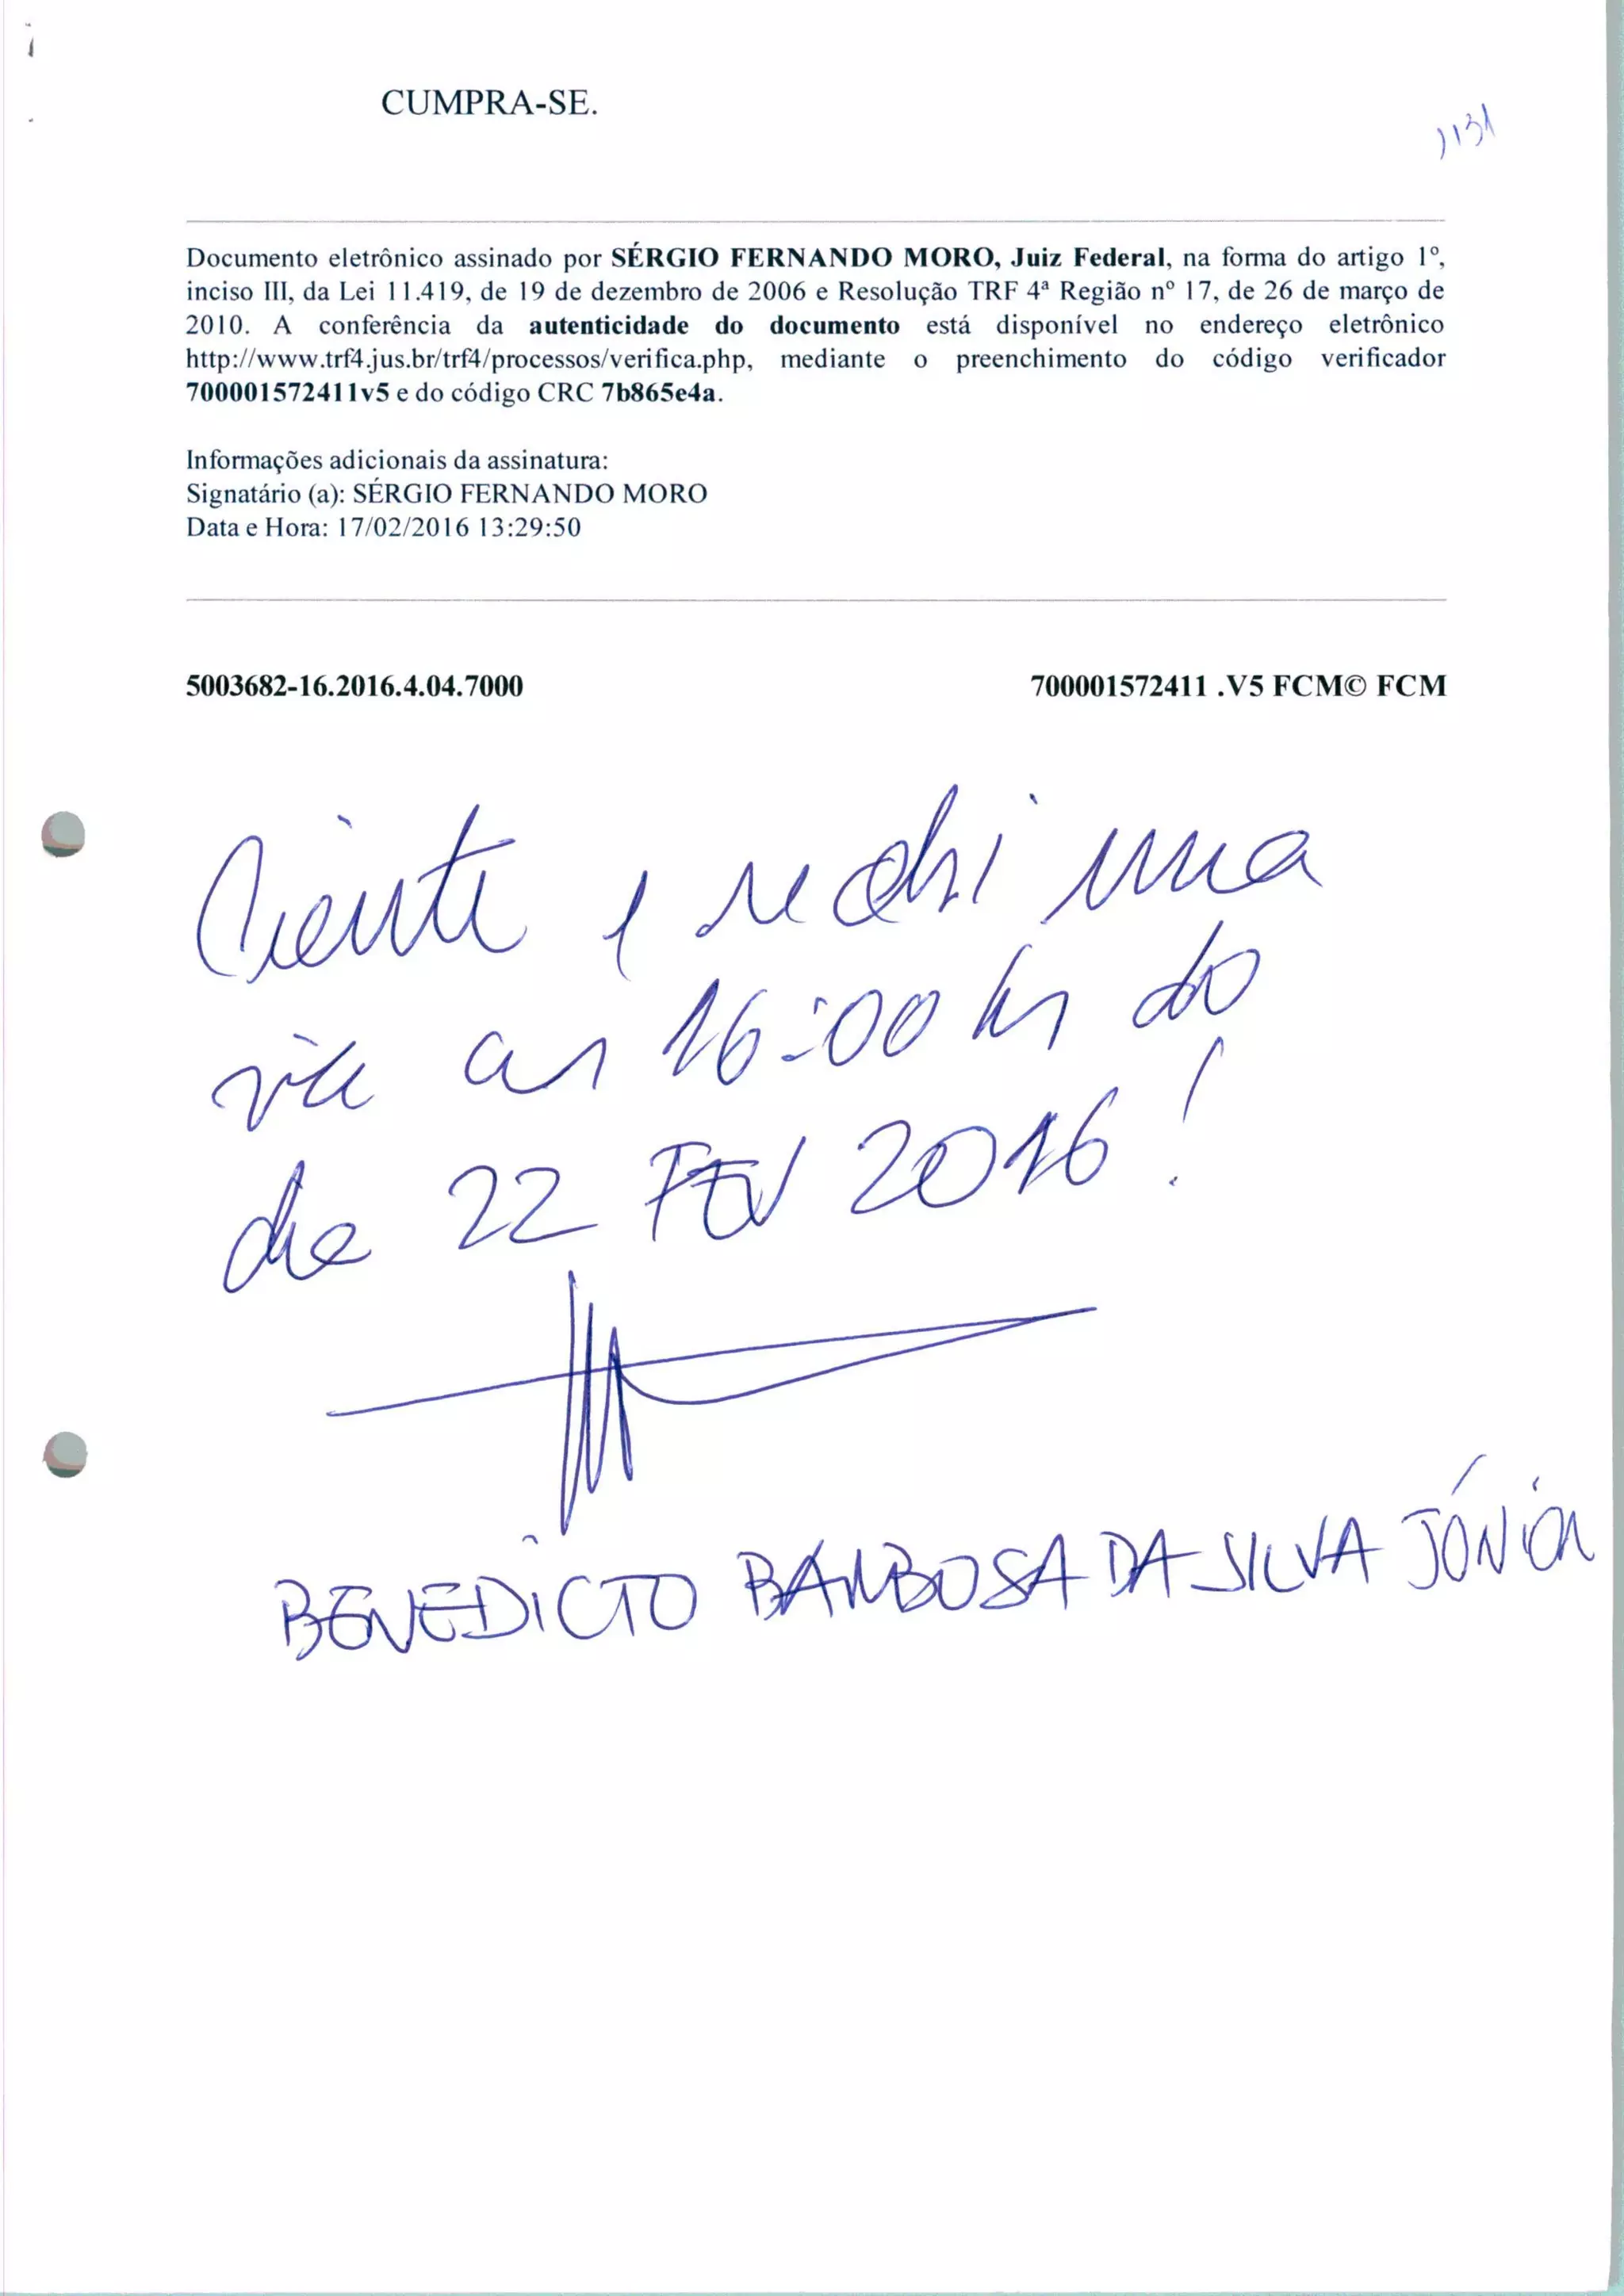 CUMPRA-SE.
1131
Documento eletrônico assinado por SÉRGIO FERNANDO MORO, Juiz Federal, na forma do artigo 1º,
inciso III, da Lei 11.419, de 19 de dezembro de 2006 e Resolução TRF 4ª Região nº 17, de 26 de março de
2010. A conferência da autenticidade do documento está disponível no endereço eletrônico
http://www.trf4.jus.br/trf4/processos/verifica.php, mediante o preenchimento do código verificador
700001572411v5 e do código CRC 7b865e4a.
Informações adicionais da assinatura:
Signatário (a): SÉRGIO FERNANDO MORO
Data e Hora: 17/02/2016 13:29:50
5003682-16.2016.4.04.7000 700001572411 .V5 FCM© FCM
Ciente e recebi uma
via as 16:00 hs do
dia 22 FEV 2016!
BENEDICTO BARBOSA DA SILVA JÚNIOR